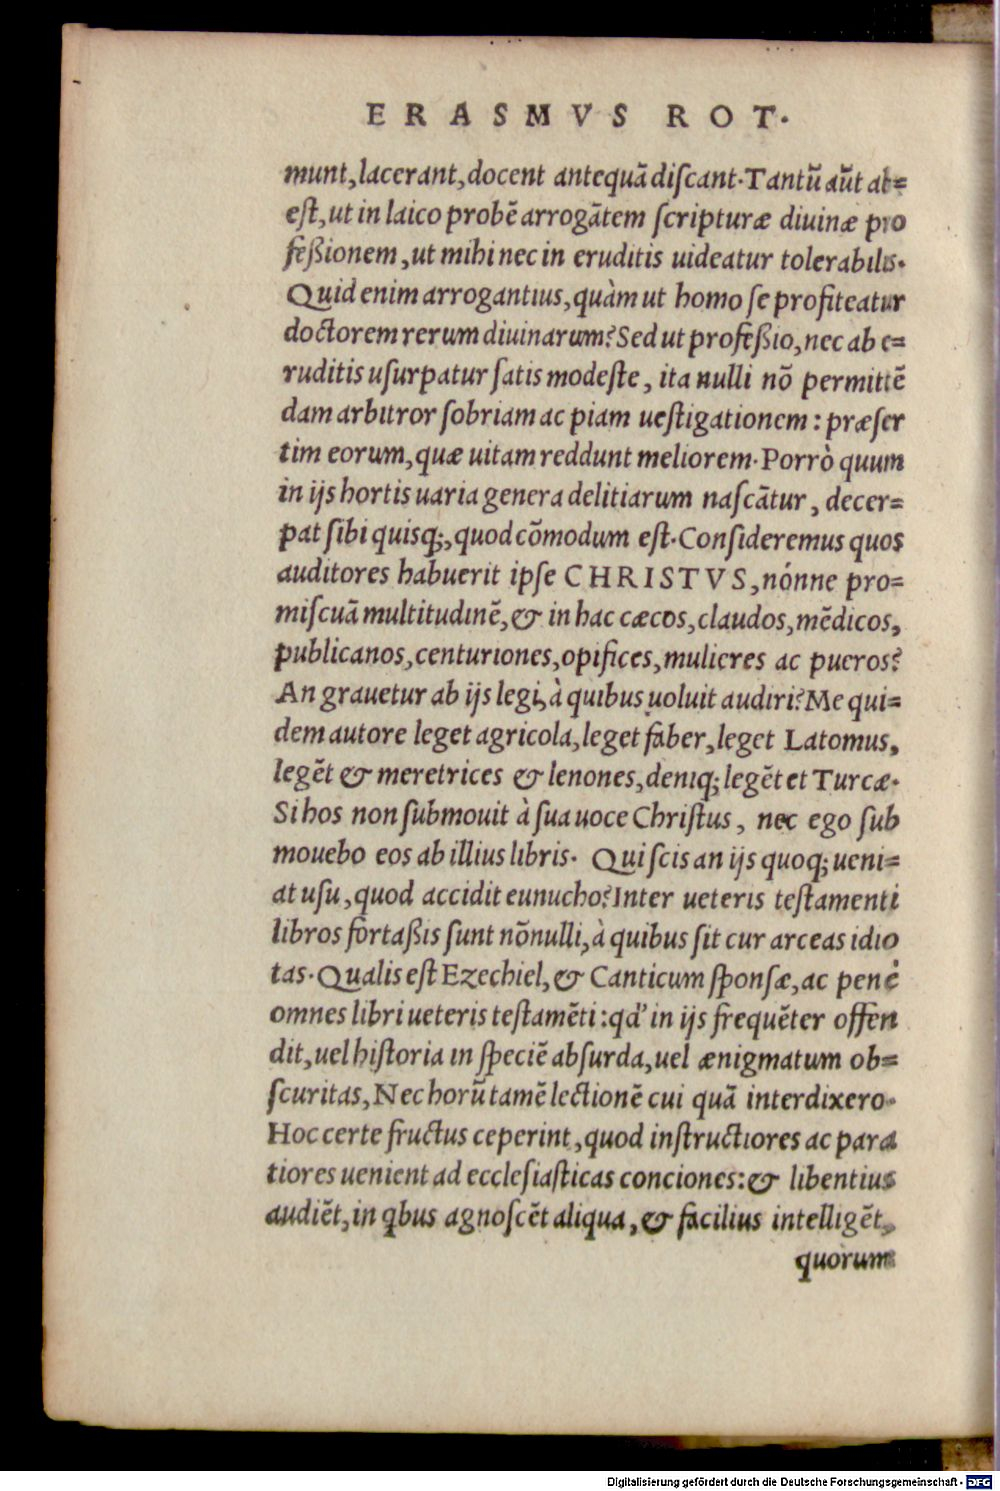 ERASMVS ROT.
munt, lacerant, docent antequā discant. Tantū aūt ab=
est, ut in laico probē arrogātem scripturæ diuinæ pro
feßionem, ut mihi nec in eruditis uideatur tolerabilis.
Quid enim arrogantius, quàm ut homo se profiteatur
doctorem rerum diuinarum? Sed ut profeßio, nec ab e=
ruditis usurpatur satis modeste, ita nulli nō permittē
dam arbitror sobriam ac piam uestigationem: præser
tim eorum, quæ uitam reddunt meliorem. Porrò quum
in ijs hortis uaria genera delitiarum nascātur, decer=
pat sibi quisq;, quod cōmodum est. Consideremus quos
auditores habuerit ipse CHRISTVS, nónne pro=
miscuā multitudinē, & in hac cæcos, claudos, mēdicos,
publicanos, centuriones, opifices, mulieres ac pueros?
An grauetur ab ijs legi, à quibus uoluit audiri? Me qui=
dem autore leget agricola, leget faber, leget Latomus,
legēt & meretrices & lenones, deniq; legēt et Turcæ.
Si hos non submouit à sua uoce Christus, nec ego sub
mouebo eos ab illius libris. Qui scis an ijs quoq; ueni=
at usu, quod accidit eunucho? Inter ueteris testamenti
libros fortaßis sunt nōnulli, à quibus sit cur arceas idio
tas. Qualis est Ezechiel, & Canticum sponsæ, ac penè
omnes libri ueteris testamēti: qđ in ijs frequēter offen
dit, uel historia in speciē absurda, uel ænigmatum ob=
scuritas, Nec horū tamē lectionē cui quā interdixero.
Hoc certe fructus ceperint, quod instructiores ac para
tiores uenient ad ecclesiasticas conciones: & libentius
audiēt, in qbus agnoscēt aliqua, & facilius intelligēt,
quorum
Digitalisierung gefördert durch die Deutsche Forschungsgemeinschaft - DFG